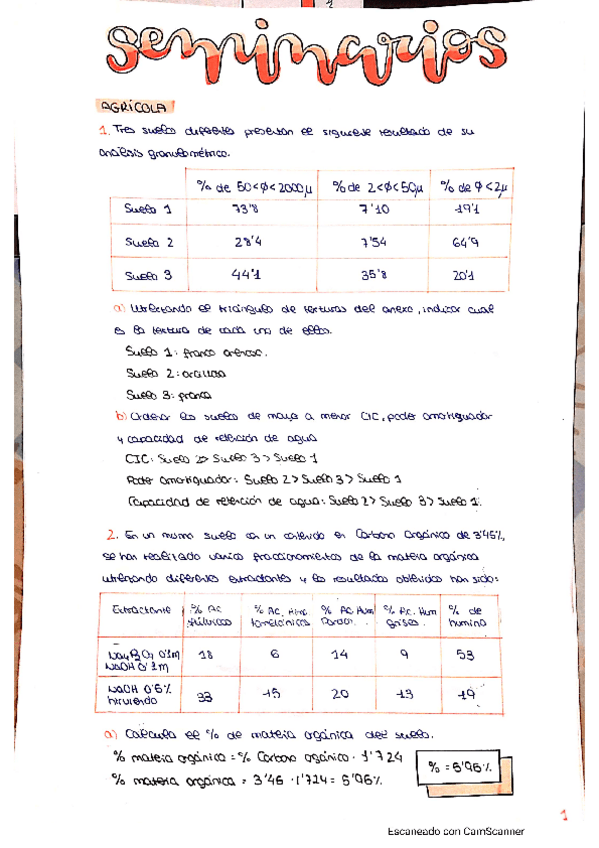 seminarios
AGRÍCOLA
1. Tres suelos diferentes presentan el siguiente resultado de su
análisis granulométrico.
% de 50<φ<2000μ % de 2<φ<50μ % de φ<2μ
Suelo 1 73'8 7'10 19'1
Suelo 2 28'4 7'54 64'9
Suelo 3 44'1 35'8 20'1
a) Utilizando el triángulo de texturas del anexo, indicar cual
es la textura de cada uno de ellos.
Suelo 1: franco arenoso.
Suelo 2: arcilloso
Suelo 3: franco
b) Ordenar los suelos de mayor a menor CIC, poder amortiguador
y capacidad de retención de agua
CIC: Suelo 2> Suelo 3 > Suelo 1
Poder amortiguador: Suelo 2 > Suelo 3 > Suelo 1
Capacidad de retención de agua: Suelo 2 > Suelo 3 > Suelo 1.
2. En un mismo suelo con un contenido en Carbono Orgánico de 3'45%,
se han realizado varios fraccionamientos de la materia orgánica
utilizando diferentes extractantes y los resultados obtenidos han sido:
Extractante % Ac. fúlvicos % Ac. Him. % Ac. Hum. Pardos. % Ac. Hum Grises. % de humina
0'1M NaOH 0'1M 18 6 14 9 53
NaOH 0'5% hirviendo 33 15 20 13 19
a) Calcula el % de materia orgánica del suelo.
% materia orgánica = % Carbono orgánico · 1'724
% materia orgánica = 3'45 · 1'724 = 5'95%.
% = 5'95%
1
Escaneado con CamScanner